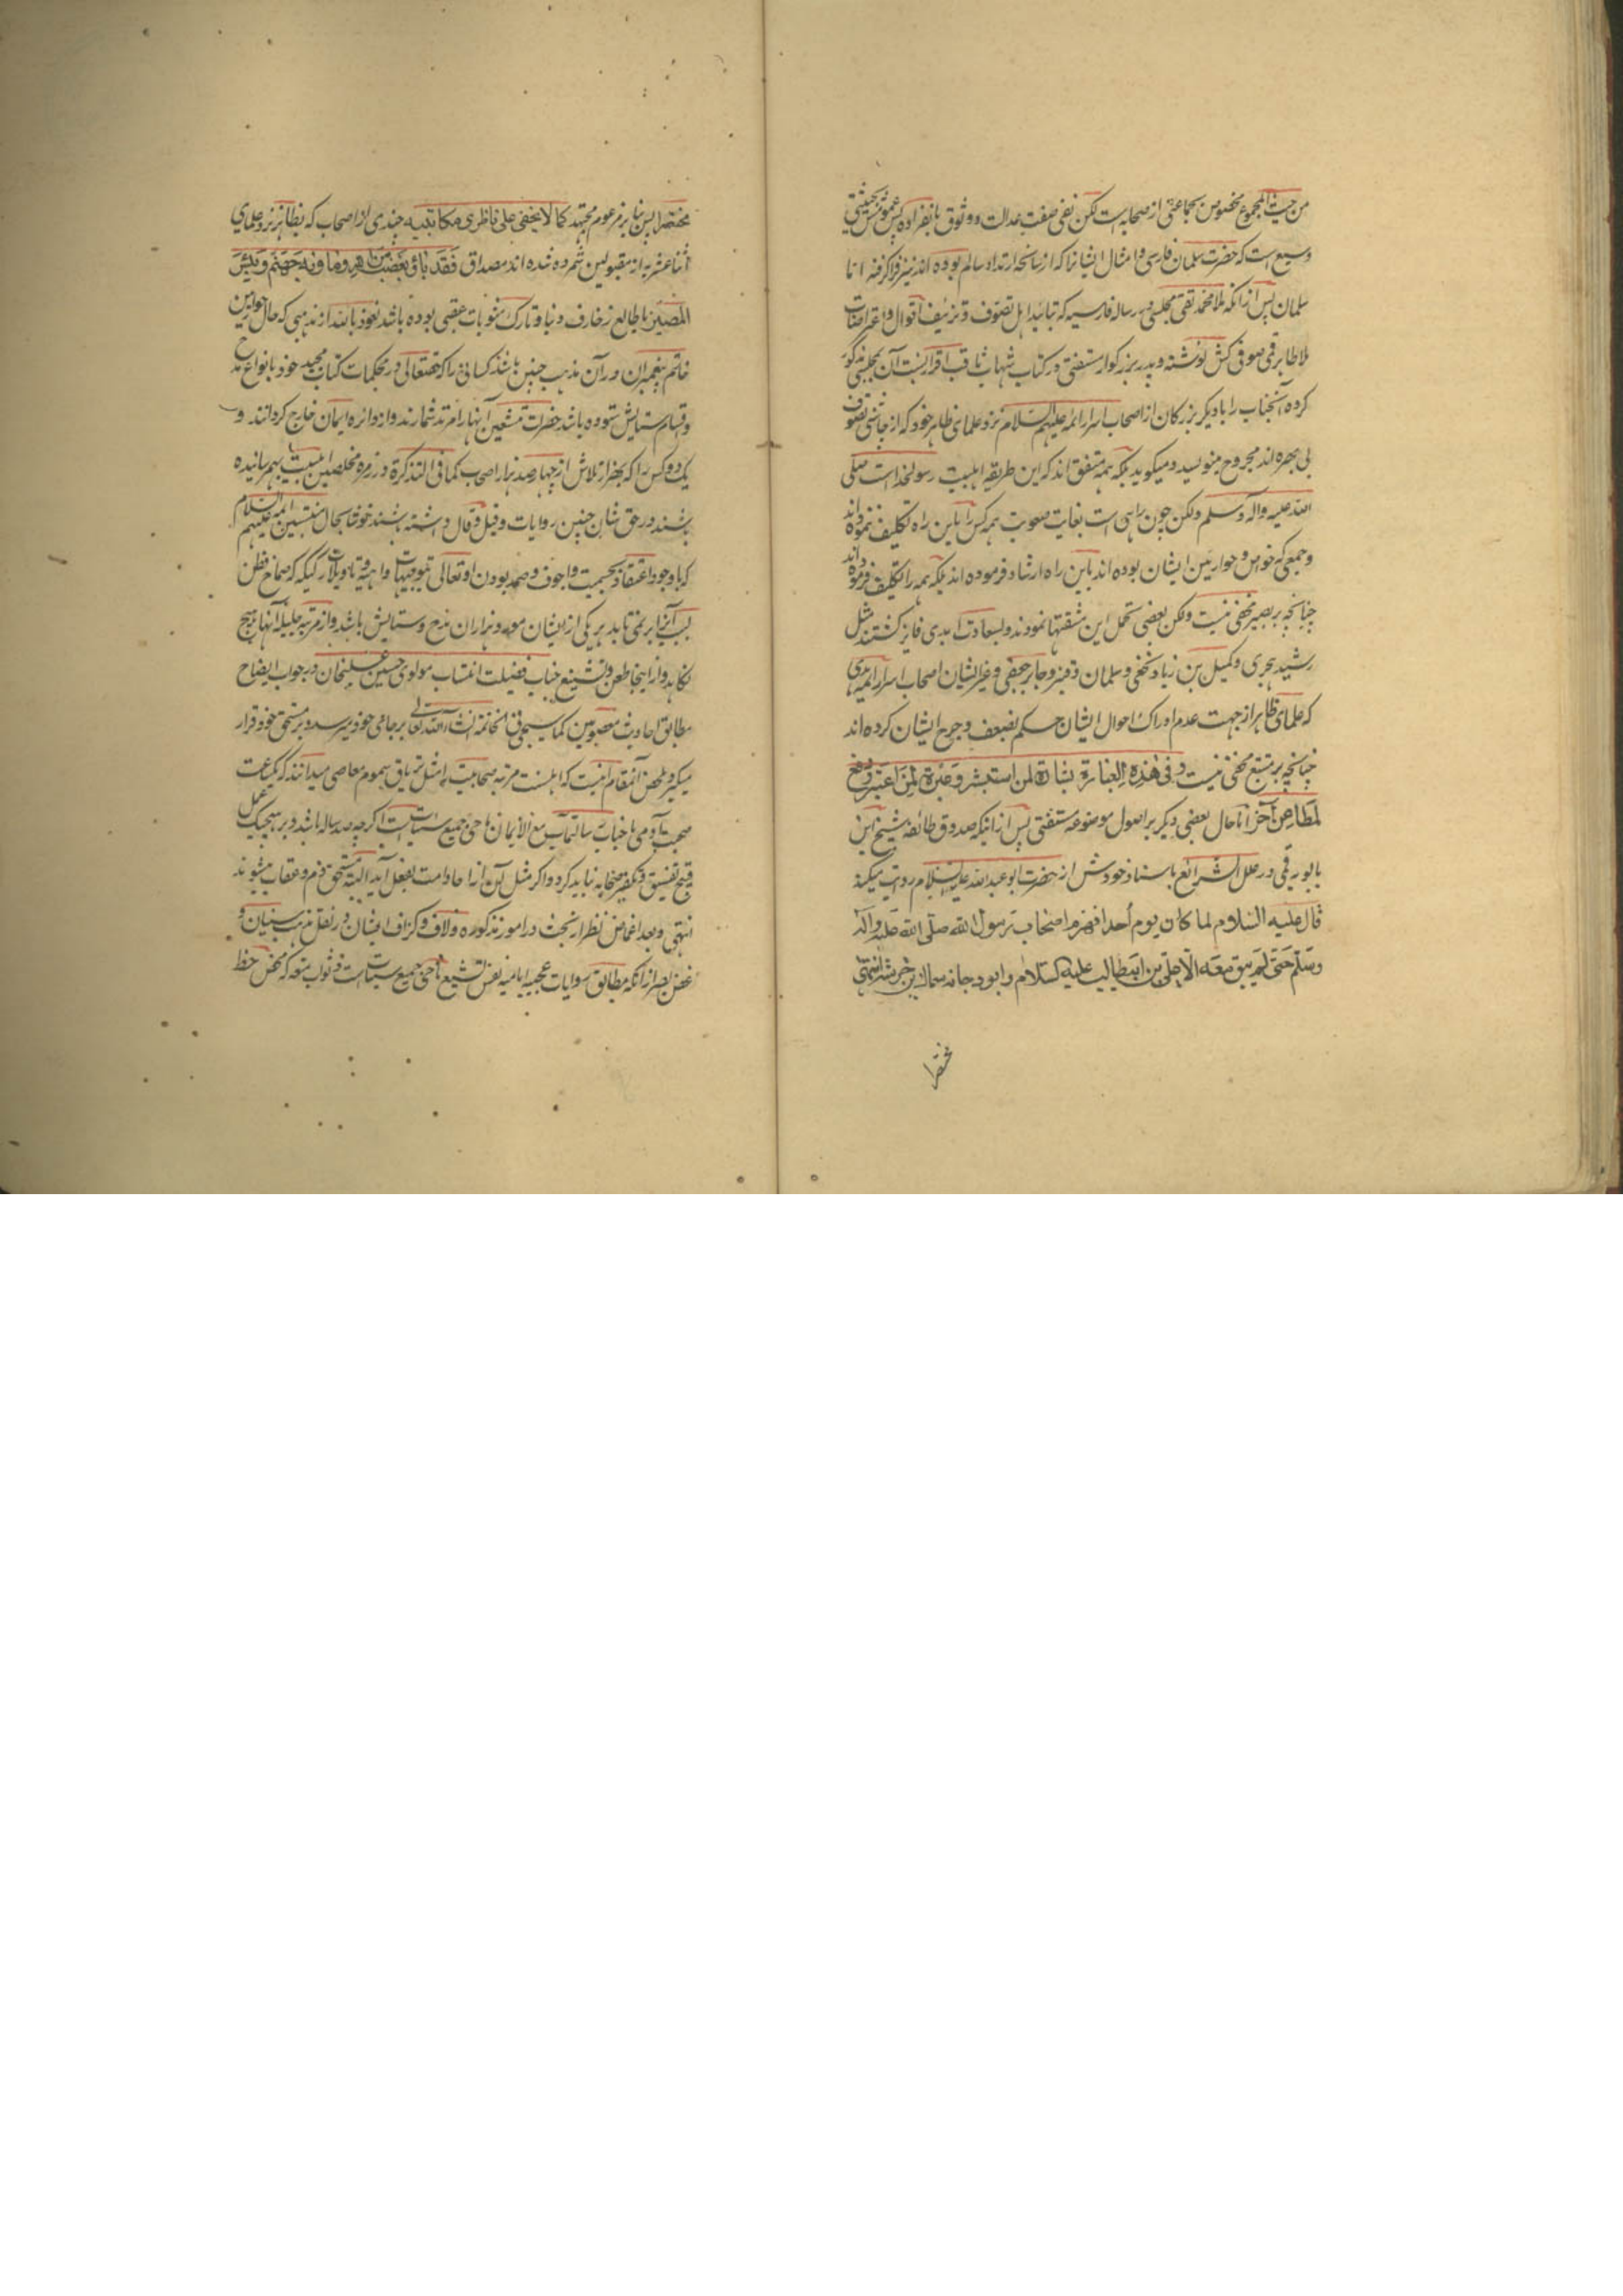 من حیث المجموع مخصوص بجماعتی از صحابه است لکن نفی صفت عدالت و وثوق بانفراده پس عمومش بحیثیتی
وسیع است که حضرت سلمان فارسی و امثال ایشانرا که از سانحه ارتداد سالم بوده اند نیز فرا گرفته اما
سلمان پس از آنکه ملا محمد تقی مجلسی در رساله فارسیه که بتائید اهل تصوف و تزئیف اقوال و اعتراضات
ملا طاهر قمی صوفی کش نوشته و پدر بزرگوار مستفتی در کتاب شهاب ثاقب اقرار نسبت آن بمجلسی مذکور
کرده آنجناب را با دیگر بزرگان از اصحاب اسرار ائمه علیهم السلام نزد علمای ظاهر خود که از چاشنی تصوف
بی بهره اند مجروح مینویسد و میگوید بلکه همه متفق اند که این طریقه اهلبیت رسولخدا است صلی
الله علیه واله وسلم ولکن چون راهی است بغایت صعوبت همه کس را باین راه تکلیف ننموده اند
و جمعی که خواص و حواریین ایشان بوده اند باین راه ارشاد فرموده اند بلکه همه را تکلیف فرموده اند
چنانچه بر بصیر مخفی نیست ولکن بعضی تحمل این مشقتها نمودند و بسعادت ابدی فایز گشتند مثل
رشید هجری و کمیل بن زیاد نخعی و سلمان و قنبر و جابر جعفی و غیر ایشان اصحاب اسرار ائمه هدی
که علمای ظاهر از جهت عدم ادراک احوال ایشان حکم بضعف و جرح ایشان کرده اند
چنانچه بر متتبع مخفی نیست و فی هذه العبارة بشارة لمن استبشر و عبرة لمن اعتبر
اما حال بعضی دیگر بر اصول موضوعه مستفتی پس از اینکه صدوق طائفه شیخ ابن
بابویه قمی در علل الشرائع باسناد خودش از حضرت ابو عبد الله علیه السلام روایت میکند
قال علیه السلام لما کان یوم أحد انهزم اصحاب رسول الله صلی الله علیه واله
وسلم حتی لم یبق معه الا علی بن ابیطالب علیه السلام و ابو دجانه سماک بن خرشه انتهی
مختصرا
مختصرا پس بنا بر مزعوم مجتهد کما لا یخفی علی ناظری مکاتیبه چندی از اصحاب که بظاهر نزد علمای
اثنا عشریه از مقبولین شمرده شده اند مصداق فقد باء بغضب من الله وماویه جهنم وبئس
المصیر یا طالع زخارف دنیا و تارک مثوبات عقبی بوده باشد نعوذ بالله از مذهبی که حال حواریین
خاتم پیغمبران در آن مذهب چنین باشد کسانی را که حقتعالی در محکمات کتاب مجید خود بانواع مدح
و اقسام ستایش ستوده باشد حضرات متشیعین آنها را مرتد شمارند و از دائره ایمان خارج گردانند و
یک دو کس را که بهزار تلاش از چهار صد هزار اصحاب کما فی التذکرة در زمره مخلصین اهلبیت بهم رسانیده
باشند در حق شان چنین روایات و قیل و قال داشته باشند خوشا بحال منتسبین ائمه علیهم السلام
که با وجود اعتقاد بجسمیت و اجوف و صمد بودن او تعالی بتوجیهات واهیه و تاویلات رکیکه که صماخ فطن
لبیب آنرا بر نمی تابد هر یکی از ایشان مورد هزاران مدح و ستایش باشد و از مرتبه جلیله آنها هیچ
نکاهد و از اینجا طعن و تشنیع جناب فضیلت انتساب مولوی حسین علیخان در جواب ایضاح
مطابق احادیث معصومین کما سیجئ فی الخاتمة انشاء الله تعالی بر جای خود میرسد و بر مستحق خود قرار
میگیرد ملخص آنمقام اینست که اهلسنت مرتبه صحابیت را مثل تریاق سموم معاصی میدانند که یکساعت
صحبت آدمی با جناب رسالتمآب مع الایمان ماحی جمیع سیئات است اگر چه صد ساله باشد و بر هیچیک عمل
قبیح تفسیق و تکفیر صحابه نباید کرد و اگر مثل آن از احاد امت بفعل آید البته مستحق ذم و عقاب میشوند
انتهی و بعد اغماض نظر از بحث در امور مذکوره و لاف و گزاف ایشان در نقل مذهب سنیان و
غض بصر از آنکه مطابق روایات عجیبه امامیه نفس تشیع ماحی جمیع سیئات است و ثواب متعه که محض حظ